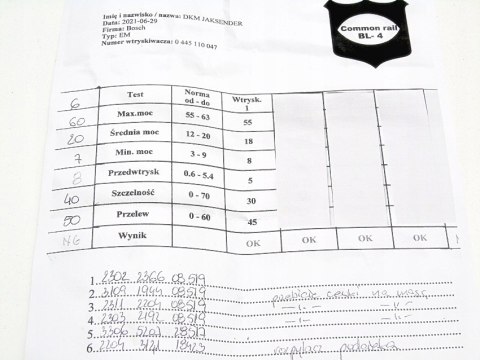 Imię i nazwisko / nazwa: DKM JAKSENDER
Data: 2021-06-29
Firma: Bosch
Typ: EM
Numer wtryskiwacza: 0 445 110 047
Common rail
BL- 4
6 Test Norma od - do Wtrysk. 1
60 Max.moc 55 - 63 55
20 Średnia moc 12 - 20 18
7 Min. moc 3 - 9 8
8 Przedwtrysk 0.6 - 5.4 5
40 Szczelność 0 - 70 30
50 Przelew 0 - 60 45
NG Wynik OK OK OK OK
1. 2302 2366 08519
2. 3109 1944 08519
3. 2311 2204 08519
4. 2303 2192 08519
5.
6. 2204